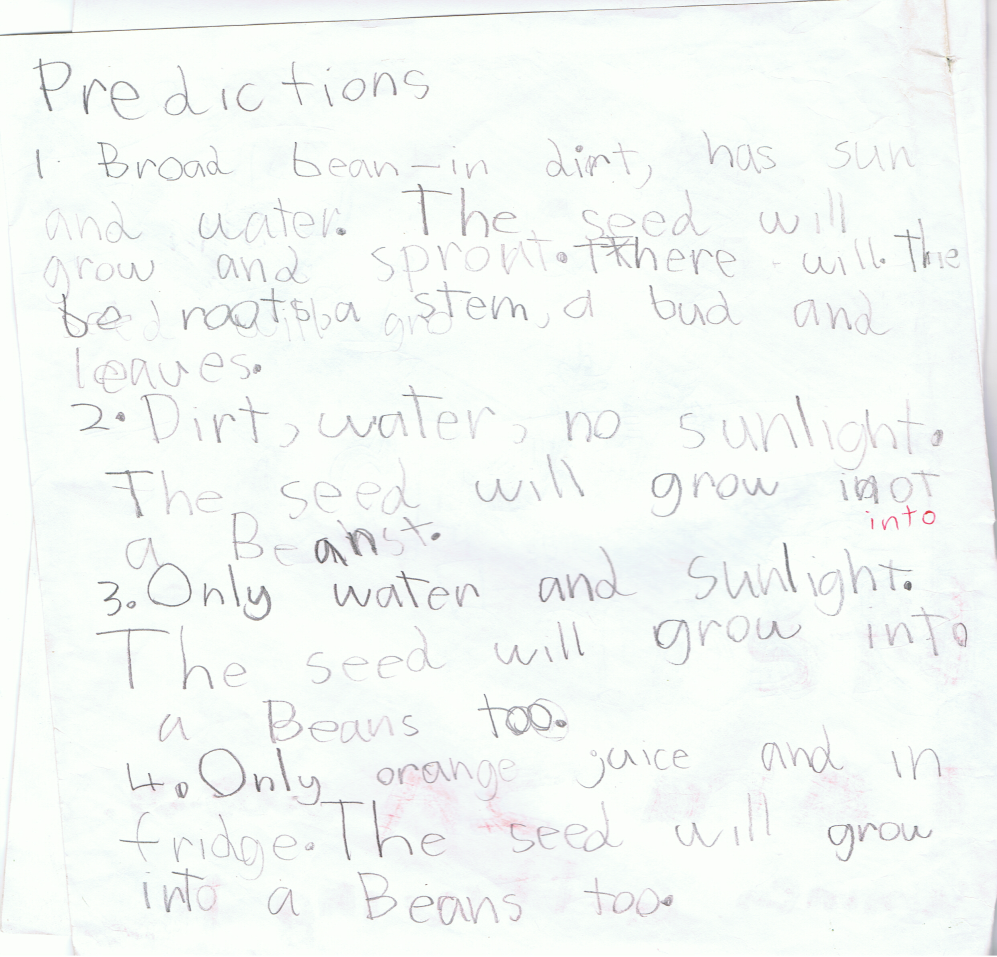 Predictions
1. Broad bean-in dirt, has sun
and water. The seed will
grow and sprout. There will. The
be roots, a stem, a bud and
leaves.
2. Dirt, water, no sunlight.
The seed will grow inot
into
a Beanst.
3. Only water and sunlight.
The seed will grow into
a Beans too.
4. Only orange juice and in
fridge. The seed will grow
into a Beans too.